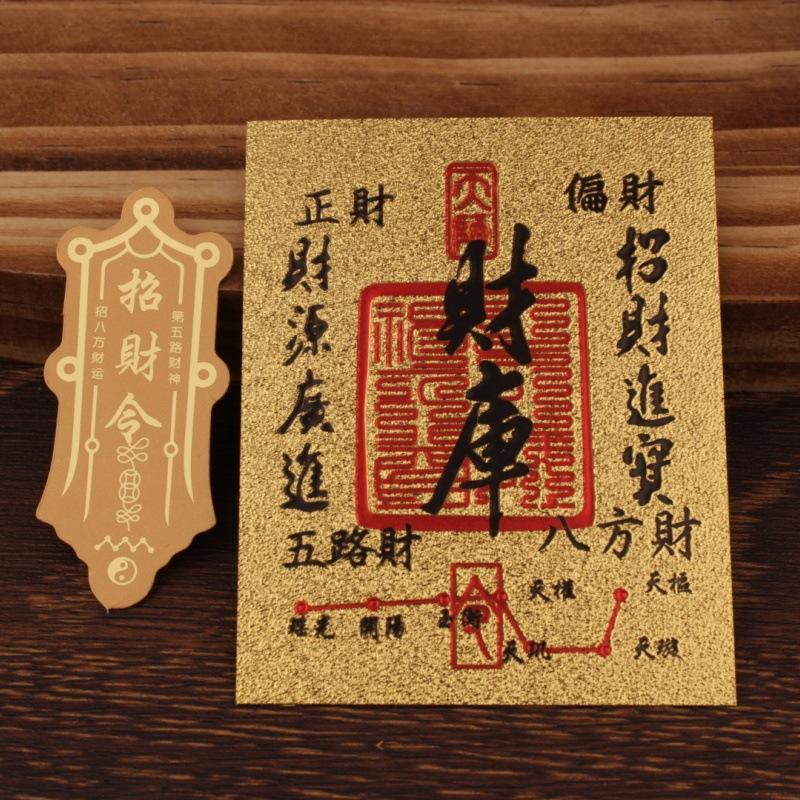 招財令
第五路财神
招八方财运
偏財
正財
招財進寶
財庫
財源廣進
五路財
八方財
天樞
天璇
天璣
天權
玉衡
開陽
瑤光
令